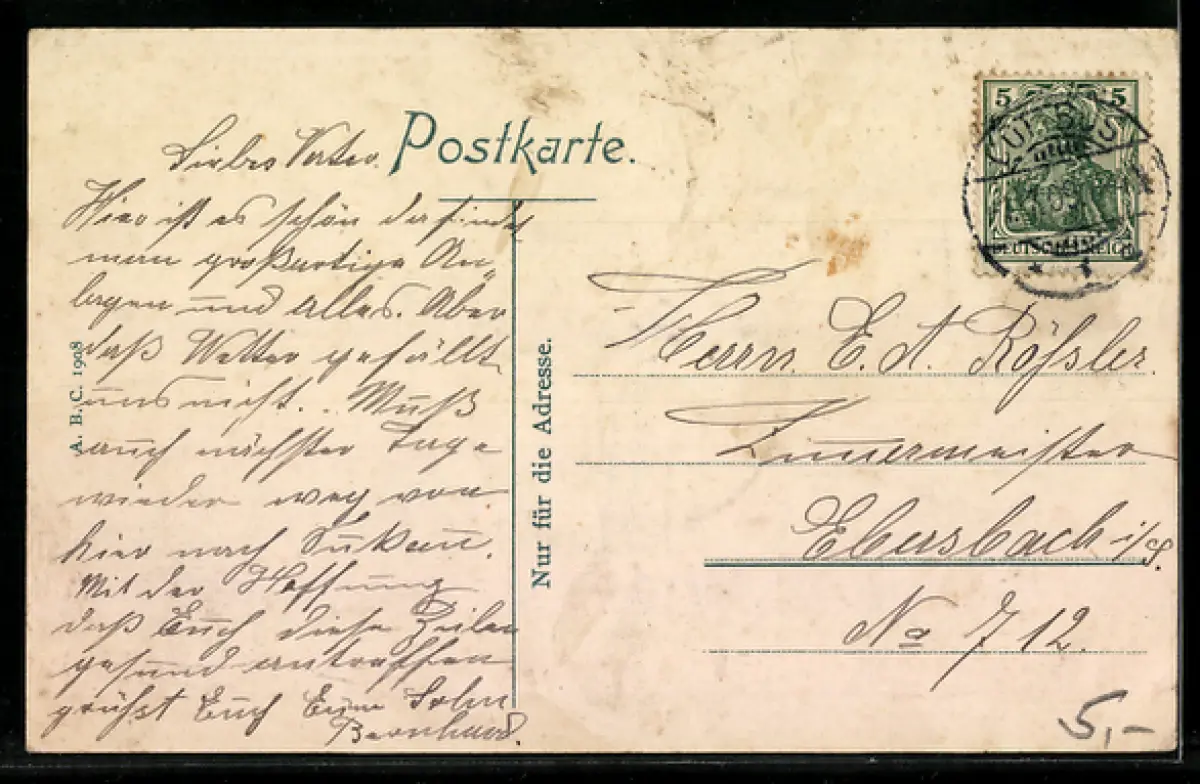 Postkarte.
Liebes Vater.
Hier ist es schön da findet
man großartige An-
lagen und alles. Aber
daß Wetter gefällt
uns nicht. Muß
auch nächster Tage
wieder weg von
hier nach
Mit der Hoffnung
daß Euch diese Zeilen
gesund antreffen
grüßt Euch Euer Sohn
Bernhard.
A. B. C. 1908
Nur für die Adresse.
5 5
DEUTSCHES REICH
Herrn E. A. Rößler.
Zimmermeister
Ebersbach i/S.
No 712.
5,-